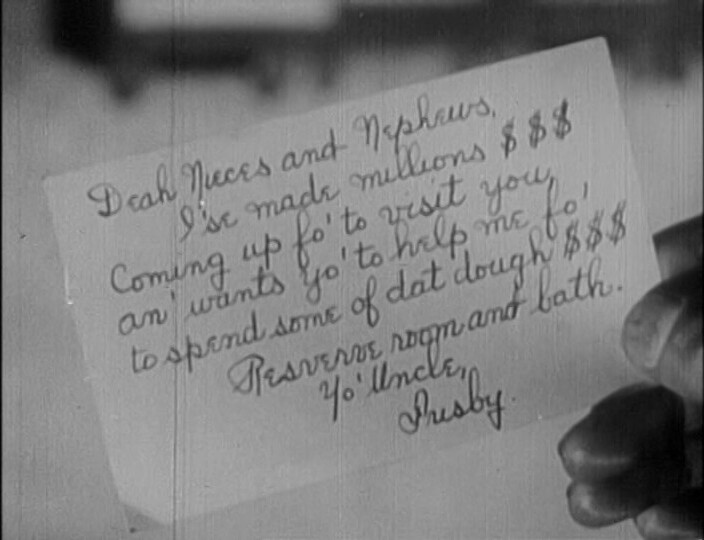 Deah Nieces and Nephews,
I'se made millions $$$
Coming up fo' to visit you,
an' wants yo' to help me fo'
to spend some of dat dough $$$
Reserve room and bath.
Yo' Uncle,
Pusby.